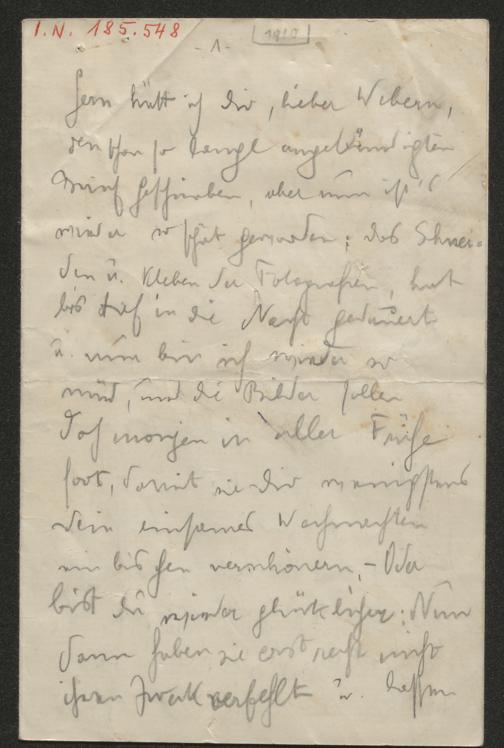 I.N. 185.548
- 1 -
1910
Gern hätt ich dir, lieber Webern,
den schon so lange angekündigten
Brief geschrieben, aber nun ist's
wieder so spät geworden; das Schnei-
den u. Kleben der Fotografien, hat
bis tief in die Nacht gedauert
u. nun bin ich wieder so
müd, und die Bilder sollen
doch morgen in aller Früh
fort, damit sie dir wenigstens
dein einsames Weihnachten
ein bisschen verschönern, – Oder
bist du wieder glücklicher: Nun
dann haben sie erst recht nicht
ihren Zweck verfehlt u.